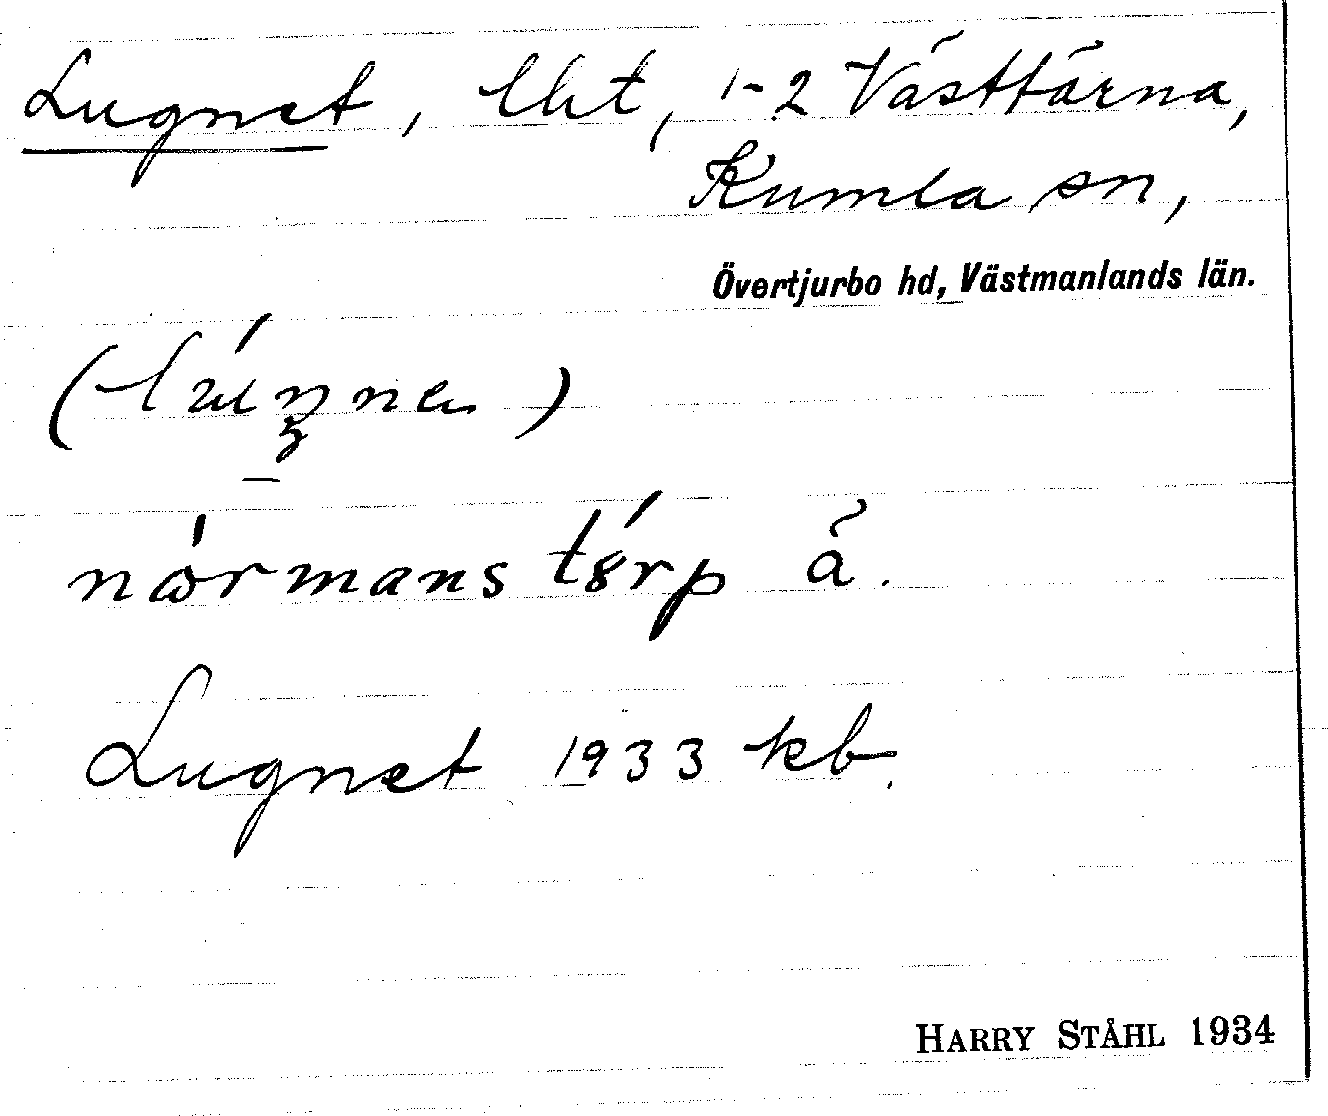 Lugnet, lht, 1-2 Västtärna,
Kumla sn,
Övertjurbo hd, Västmanlands län.
Lugnet 1933 kb.
HARRY STÅHL 1934